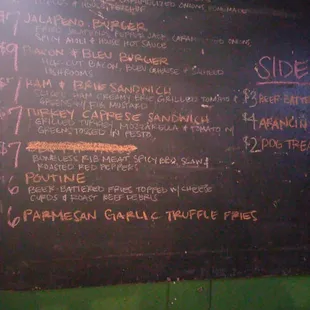 CARAMELIZED ONIONS
$7 JALAPENO BURGER
PEPPER JACK, CARAMELIZED ONIONS
SPICY AIOLI & HOUSE HOT SAUCE
$9 BACON & BLEU BURGER
THICK CUT BACON, BLEU CHEESE & SAUTEED
MUSHROOMS
HAM & BRIE SANDWICH
SLICED HAM, CREAMY BRIE, GRILLED TOMATO &
GREENS W/ FIG MUSTARD
$7 TURKEY CAPRESE SANDWICH
GRILLED TURKEY, MOZZARELLA & TOMATO W/
GREENS TOSSED IN PESTO
$7
BONELESS RIB MEAT, SPICY BBQ, SLAW &
ROASTED RED PEPPERS
6 POUTINE
BEER-BATTERED FRIES TOPPED W/ CHEESE
CURDS & ROAST BEEF DEBRIS
6 PARMESAN GARLIC TRUFFLE FRIES
SIDE
$3 BEER BATTE
$4 ARANCIN
$2 DOG TREA